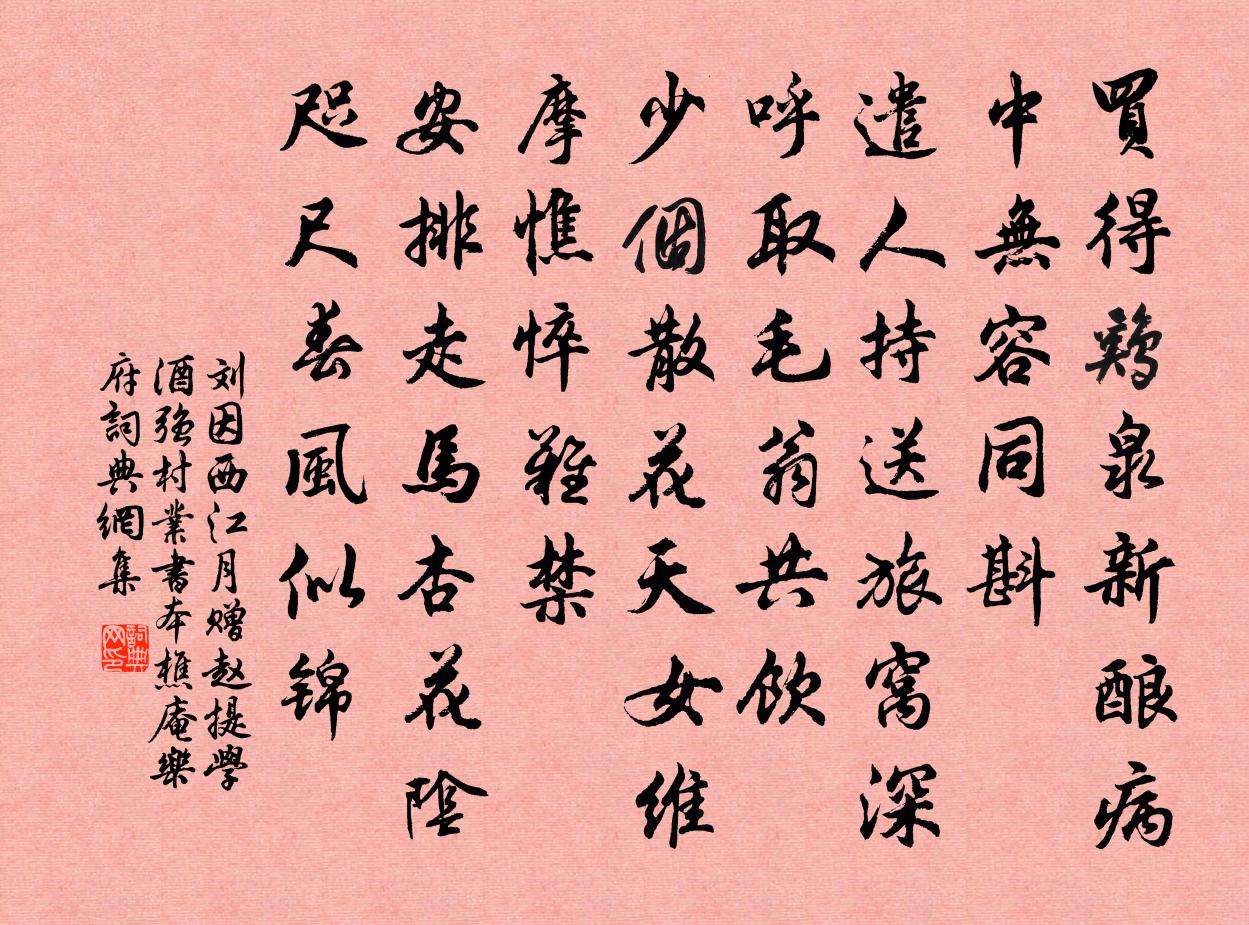 買得鷄泉新酿病
中無容同斟
遣人持送旅窩深
呼取毛翁共饮
少個散花天女維
摩憔悴難禁
安排走馬杏花陰
咫尺春風似锦
刘因西江月赠赵提學
酒强村業書本樵庵樂
府詞典網集
詞典网印